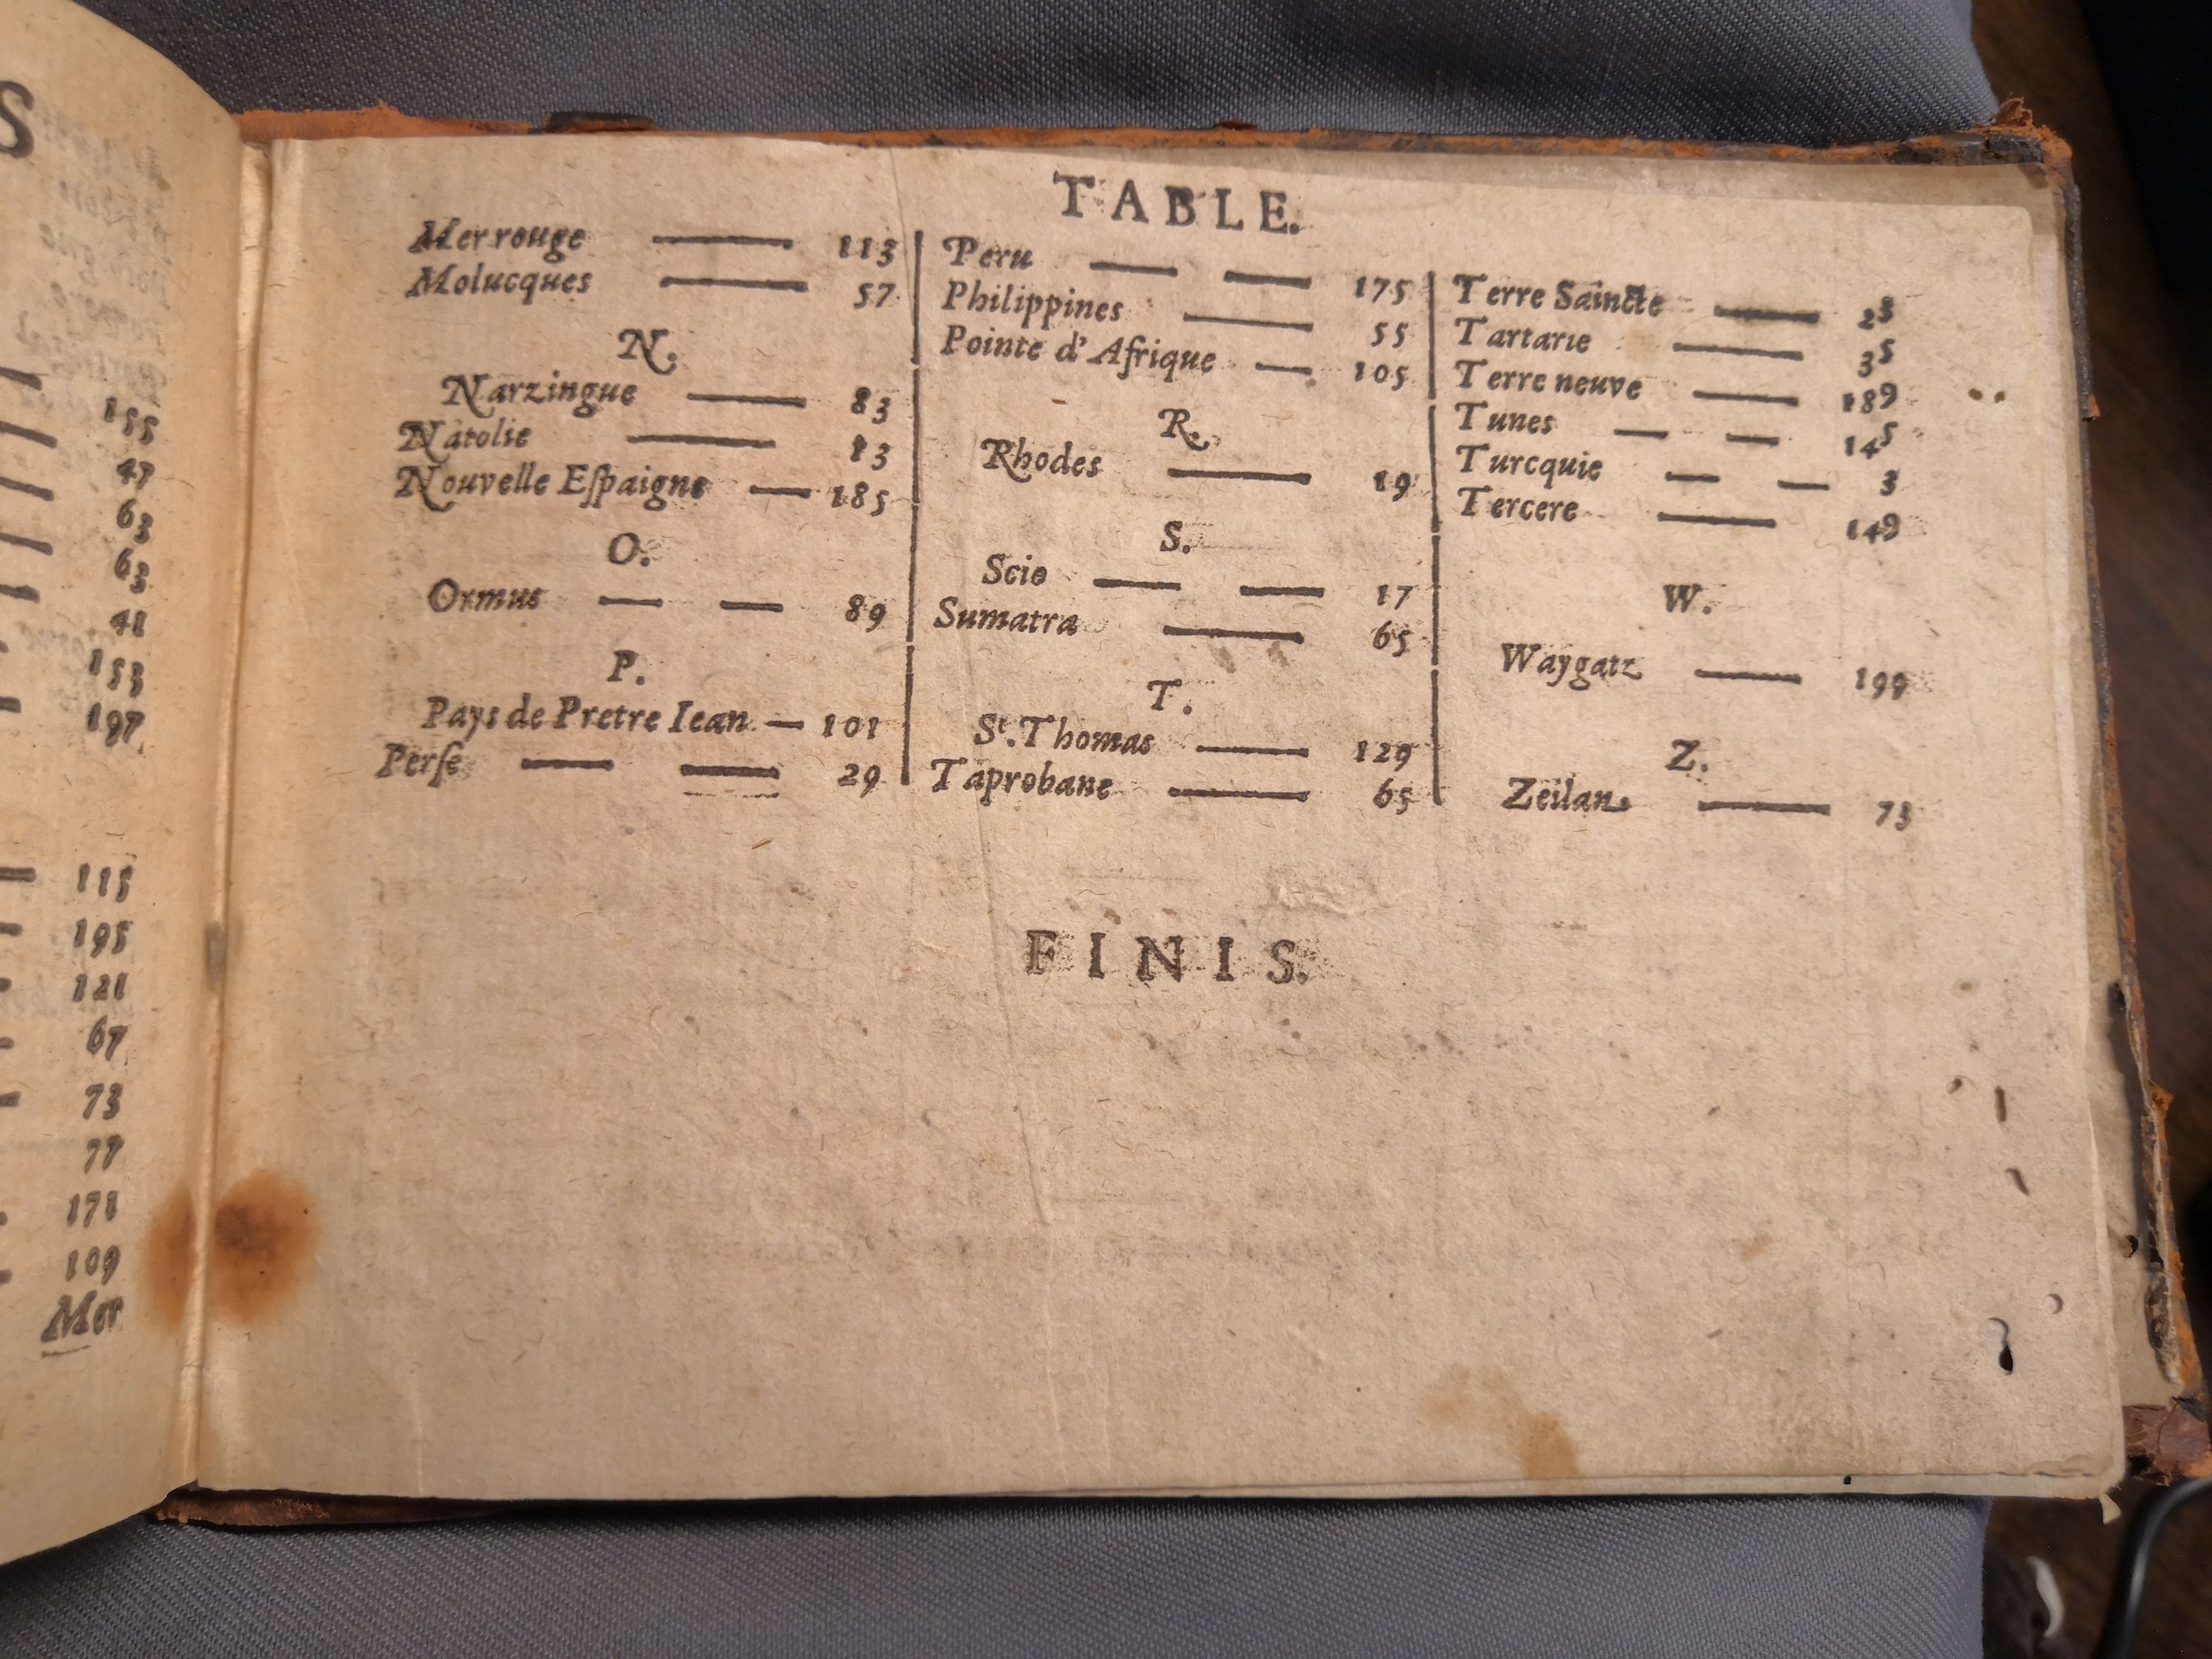 S
155
47
63
63
41
153
197
115
195
121
67
73
77
171
109
Mer
TABLE.
Mer rouge 113
Molucques 57
N.
Narzingue 83
Natolie 13
Nouvelle Eſpaigne 185
O.
Ormus 89
P.
Pays de Pretre Iean 101
Perſe 29
Peru 175
Philippines 55
Pointe d'Afrique 105
R.
Rhodes 19
S.
Scio 17
Sumatra 65
T.
St. Thomas 129
Taprobane 65
Terre Saincte 23
Tartarie 35
Terre neuve 189
Tunes 145
Turcquie 3
Tercere 149
W.
Waygatz 199
Z.
Zeilan 73
FINIS.